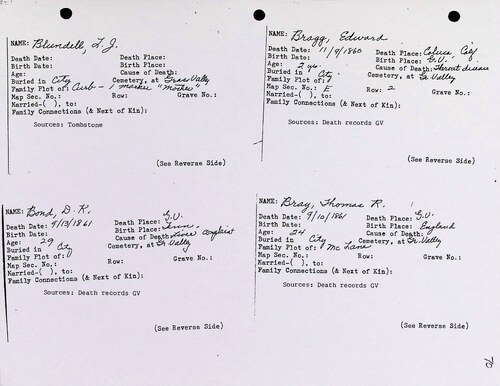 NAME: Blundell, L. J.
Death Date: Death Place:
Birth Date: Birth Place:
Age: Cause of Death:
Buried in City Cemetery, at Grass Valley
Family Plot of: Curb - 1 marker "Mother"
Map Sec. No.: Row: Grave No.:
Married-( ), to:
Family Connections (& Next of Kin):
Sources: Tombstone
(See Reverse Side)
NAME: Bragg, Edward
Death Date: 11/9/1860 Death Place: Colusa, Calif
Birth Date: Birth Place: G.V.
Age: 2 yrs. Cause of Death: Throat disease
Buried in City Cemetery, at Gr Valley
Family Plot of: ?
Map Sec. No.: E Row: 2 Grave No.:
Married-( ), to:
Family Connections (& Next of Kin):
Sources: Death records GV
(See Reverse Side)
NAME: Bond, D. K.
Death Date: 9/13/1861 Death Place: G.V.
Birth Date: Birth Place: Tenn.
Age: 29 Cause of Death: Liver complaint
Buried in City Cemetery, at Gr Valley
Family Plot of:
Map Sec. No.: Row: Grave No.:
Married-( ), to:
Family Connections (& Next of Kin):
Sources: Death records GV
(See Reverse Side)
NAME: Bray, Thomas R.
Death Date: 9/10/1861 Death Place: G.V.
Birth Date: Birth Place: England
Age: 24 Cause of Death:
Buried in City Cemetery, at Gr. Valley
Family Plot of: Mc Lane
Map Sec. No.: Row: Grave No.:
Married-( ), to:
Family Connections (& Next of Kin):
Sources: Death records GV
(See Reverse Side)
70